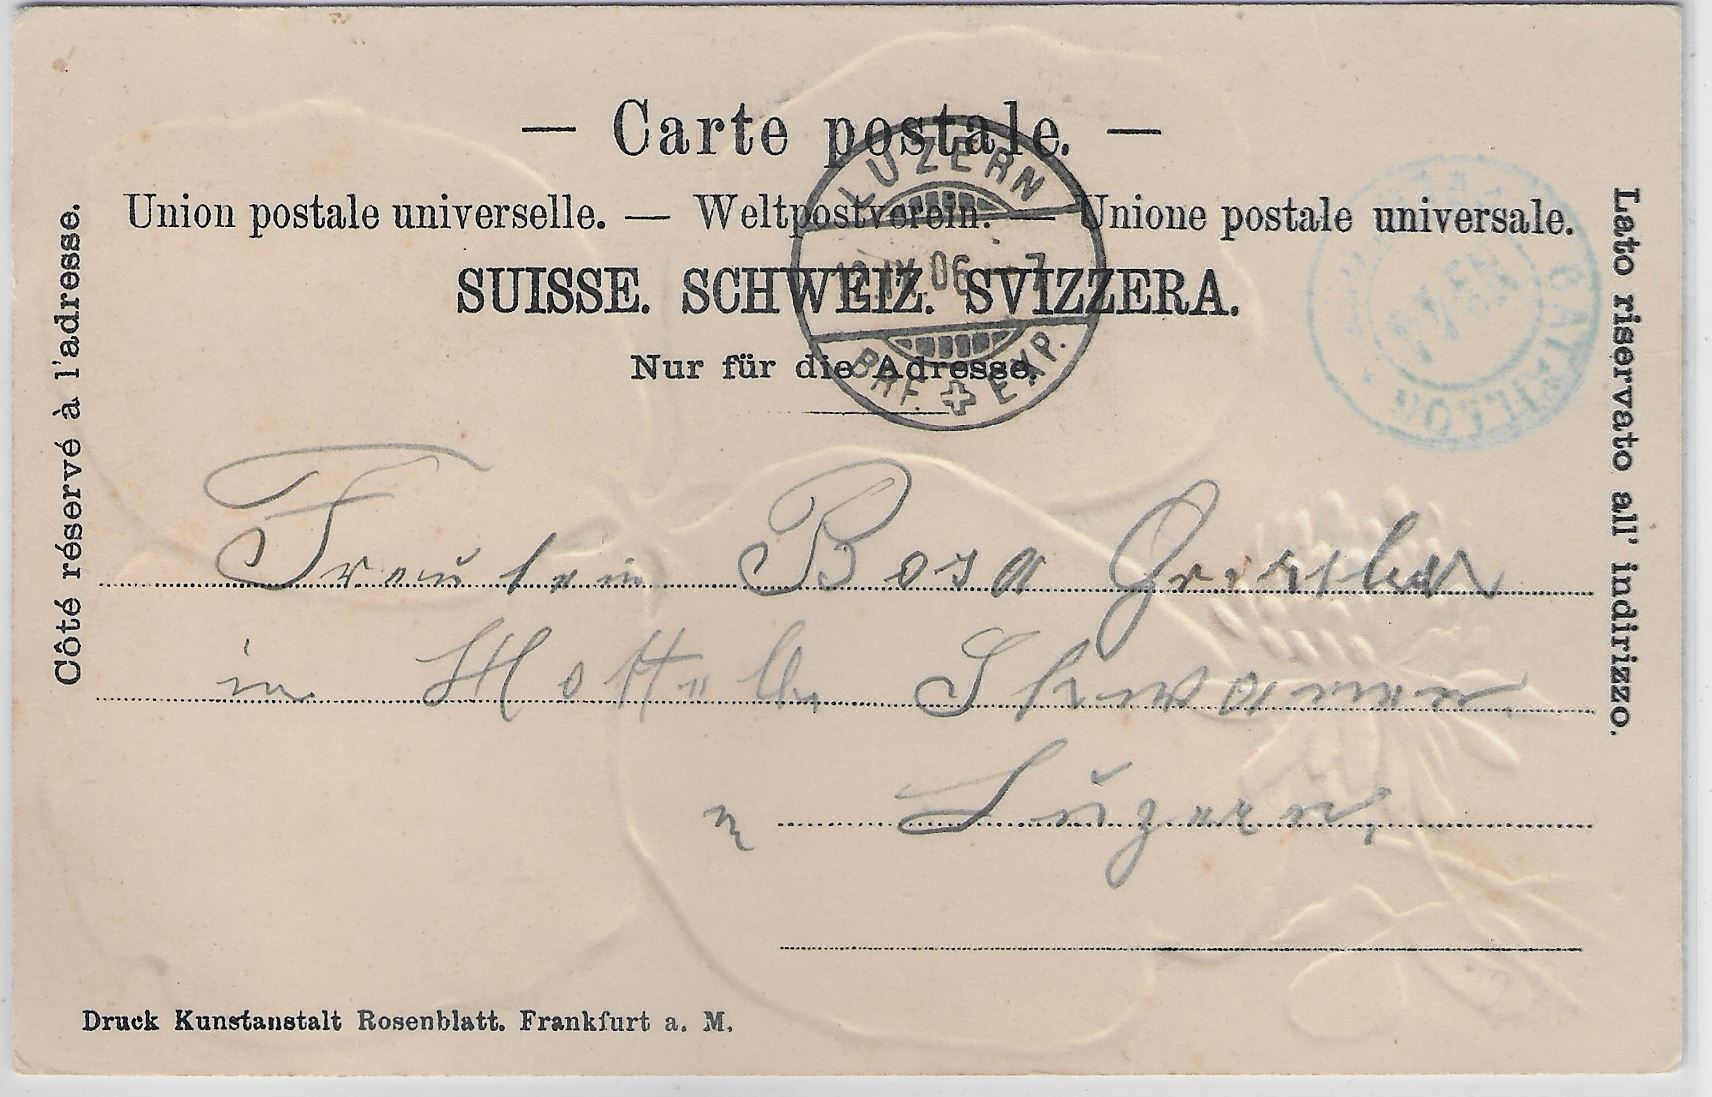 — Carte postale. —
Union postale universelle. — Weltpostverein. — Unione postale universale.
SUISSE. SCHWEIZ. SVIZZERA.
Nur für die Adresse.
Côté réservé à l'adresse.
Lato riservato all' indirizzo.
LUZERN
12.IV.06. -7
BRF. EXP.
BATAILLON
Fräulein Rosa
in Hottel, Schwanen
in Luzern,
Druck Kunstanstalt Rosenblatt. Frankfurt a. M.